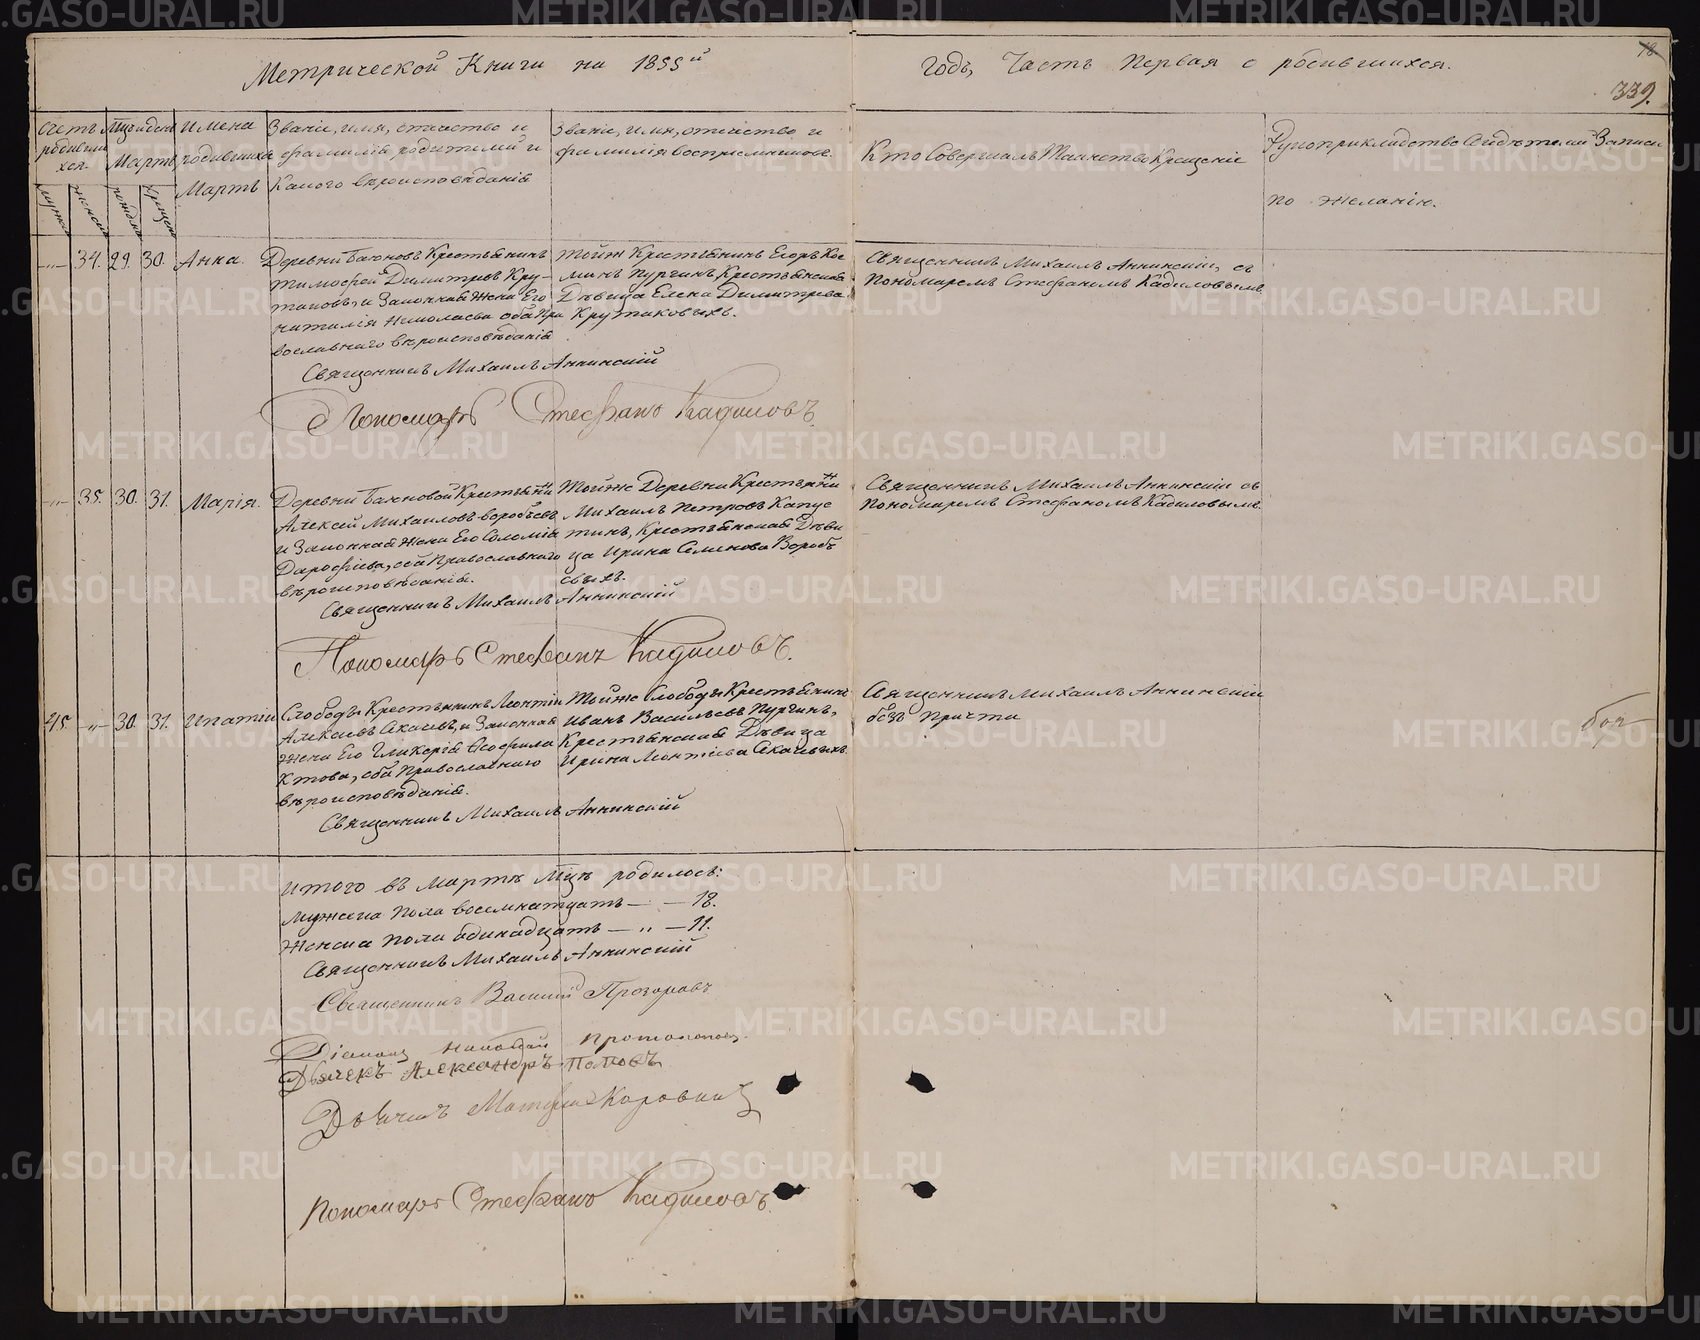 Метрической Книги на 1855й
годъ, Часть Первая о родившихся.
18
339.
Счетъ родивших
хся.
Мужеска
Женска
Мцъ и день
Мартъ
рожден
крещен
Имена
родившихся
Мартъ
Званіе, имя, отчество и
фамилія родителей и
какого вѣроисповѣданія
Званіе, имя, отчество и
фамилія воспріемниковъ.
Кто Совершалъ Таинство Крещенія
Рукоприкладство Свидѣтелей Записи
по желанію.
-„- 34. 29. 30. Анна.
Деревни Баженовъ Крестьянинъ
Тимофей Димитріевъ Кру-
таковъ, и Законная Жена Его
Наталія Николаева оба Пра
вославнаго вѣроисповѣданія
Священникъ Михаилъ Аннинскій
Пономарь Стефанъ Кадиловъ.
Тойж Крестьянинъ Егоръ Кос
минъ Пургинъ, Крестьянская
Дѣвица Елена Димитріева
Крутаковыхъ.
Священникъ Михаилъ Аннинскій, съ
Пономаремъ Стефаномъ Кадиловымъ.
-„- 35. 30. 31. Марія.
Деревни Баженовой Крестьянинъ
Алексей Михаиловъ Воробьевъ
и Законная Жена Его Соломія
Дарофіева, оба Православнаго
вѣроисповѣданія.
Священникъ Михаилъ Аннинскій
Пономарь Стефанъ Кадиловъ.
Тойже Деревни Крестьянинъ
Михаилъ Петровъ Капус
тинъ, Крестьянская Дѣви
ца Ирина Семенова Воробь
евыхъ.
Священникъ Михаилъ Аннинскій съ
Пономаремъ Стефаномъ Кадиловымъ.
45. -„- 30. 31. Ипатій
Слободы Крестьянинъ Леонтій
Алексеевъ Скачевъ, и Законная
Жена Его Гликерія Феофила
Ктова, оба Православнаго
вѣроисповѣданія.
Священникъ Михаилъ Аннинскій
Тойже Слободы Крестьянинъ
Иванъ Васильевъ Пургинъ,
Крестьянская Дѣвица
Ирина Леонтіева Скачевыхъ.
Священникъ Михаилъ Аннинскій
безъ Причта
Итого въ Мартѣ Мцѣ родилось:
Мужеска Пола восемнатцать — „ — 18.
Женска Пола Одинадцать — „ — 11.
Священникъ Михаилъ Аннинскій
Священникъ Василій Прозоровъ
Діаконъ Протопоповъ
Дьячекъ Александръ Поповъ
Дьячекъ Матфій Коровинъ
Пономарь Стефанъ Кадиловъ.
METRIKI.GASO-URAL.RU